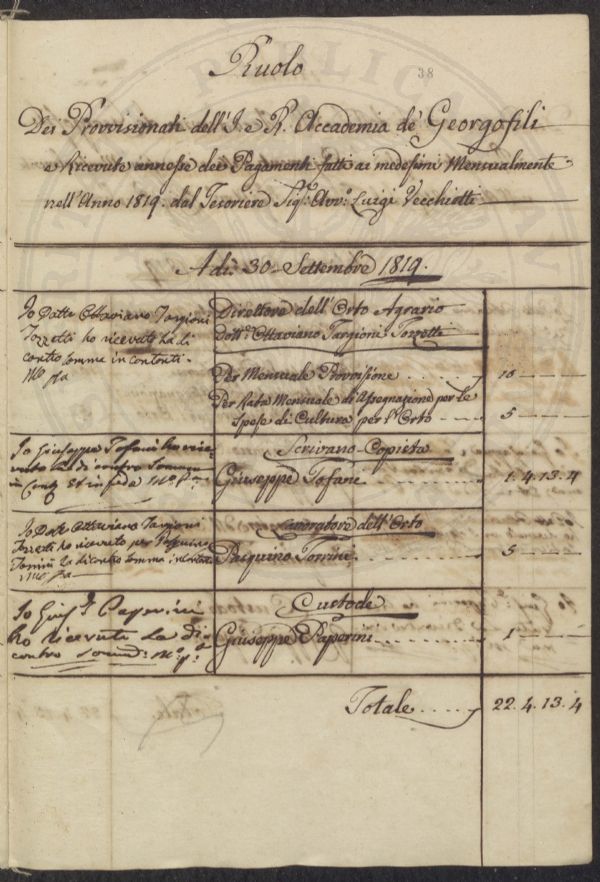 38
Ruolo
Dei Provvisionati dell'I. e R. Accademia de' Georgofili
e Ricevute annesse dei Pagamenti fatti ai medesimi Mensualmente
nell'Anno 1819. dal Tesoriere Sigr. Avvo. Luigi Vecchietti
A dì 30 Settembre 1819.
Io Dottr Ottaviano Targioni
Tozzetti ho ricevuto la di
contro somma in contanti
Mo pa
Direttore dell'Orto Agrario
Dottr. Ottaviano Targioni Tozzetti
Per Mensuale Provvisione 10
Per Rata Mensuale di Assegnazione per le
Spese di Cultura per l'Orto 5
Io Giuseppe Tofani ho rice-
vuto la di contro Somma
in Conti et in fede Mo. Pa.
Scrivano Copista
Giuseppe Tofani 1. 4. 13. 4
Io Dottr Ottaviano Targioni
Tozzetti ho ricevuto per Pasquino
Torrini la di contro somma in contanti
Mo pa
Lavoratore dell'Orto
Pasquino Torrini 5
Io Giuse. Paperini
ho ricevuto la di
contro Somma Mo. pa.
Custode
Giuseppe Paperini 1
Totale 22. 4. 13. 4